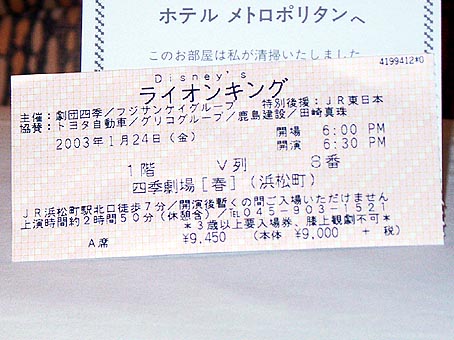 ホテル メトロポリタンへ
このお部屋は私が清掃いたしました
4199412*0
Disney's
ライオンキング
主催:劇団四季/フジサンケイグループ 特別後援:JR東日本
協賛:トヨタ自動車/グリコグループ/鹿島建設/田崎真珠
2003年1月24日(金) 開場 6:00 PM
開演 6:30 PM
1階 V列 8番
四季劇場[春](浜松町)
JR浜松町駅北口徒歩7分/開演後暫くの間ご入場いただけません
上演時間約2時間50分(休憩含)/TEL045-903-1521
*3歳以上要入場券、膝上観劇不可*
A席 ¥9,450 (本体 ¥9,000 + 税)